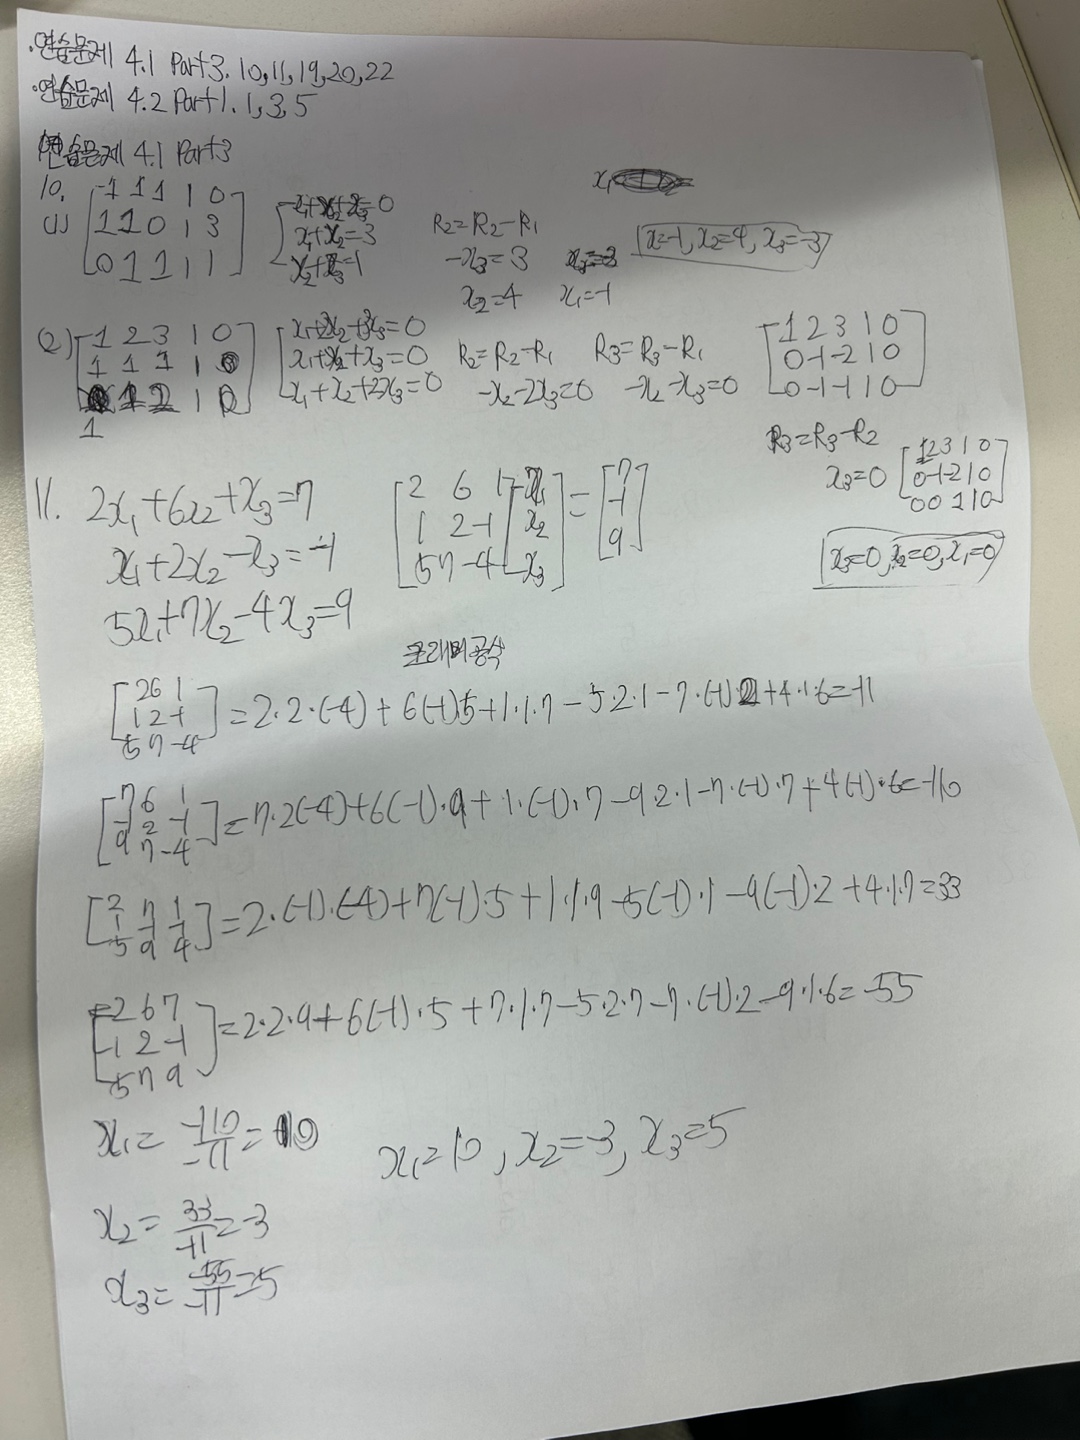 ·연습문제 4.1 Part3. 10,11,19,20,22
·연습문제 4.2 Part1. 1,3,5
연습문제 4.1 Part3
10.
(1) [1 1 1 | 0
1 1 0 | 3
0 1 1 | 1]
x₁+x₂+x₃=0
x₁+x₂=3
x₂+x₃=1
R₂=R₂-R₁
-x₃=3
x₂=4 x₁=-1
x=-1, x₂=4, x₃=-3
2) [1 2 3 | 0
1 1 1 | 0
1 1 2 | 0]
x₁+2x₂+3x₃=0
x₁+x₂+x₃=0
x₁+x₂+2x₃=0
R₂=R₂-R₁ R₃=R₃-R₁
-x₂-2x₃=0 -x₂-x₃=0
[1 2 3 | 0
0 -1 -2 | 0
0 -1 -1 | 0]
R₃=R₃-R₂
x₃=0 [1 2 3 | 0
0 -1 -2 | 0
0 0 1 | 0]
x₃=0, x₂=0, x₁=0
11. 2x₁+6x₂+x₃=7
x₁+2x₂-x₃=-1
5x₁+7x₂-4x₃=9
[2 6 1
1 2 -1
5 7 -4] [x₁
x₂
x₃] = [7
-1
9]
크래머 공식
[2 6 1
1 2 -1
5 7 -4] =2·2·(-4)+6(-1)5+1·1·7-5·2·1-7·(-1)·2+4·1·6=-11
[7 6 1
-1 2 -1
9 7 -4] =7·2(-4)+6(-1)·9+1·(-1)·7-9·2·1-7·(-1)·7+4(-1)·6=-110
[2 7 1
1 -1 -1
5 9 -4] =2·(-1)·(-4)+7(-1)·5+1·1·9-5(-1)·1-9(-1)·2+4·1·7=33
[2 6 7
1 2 -1
5 7 9] =2·2·9+6(-1)·5+7·1·7-5·2·7-7·(-1)·2-9·1·6=-55
x₁=-110/-11=10 x₁=10, x₂=-3, x₃=5
x₂=33/-11=-3
x₃=-55/-11=5